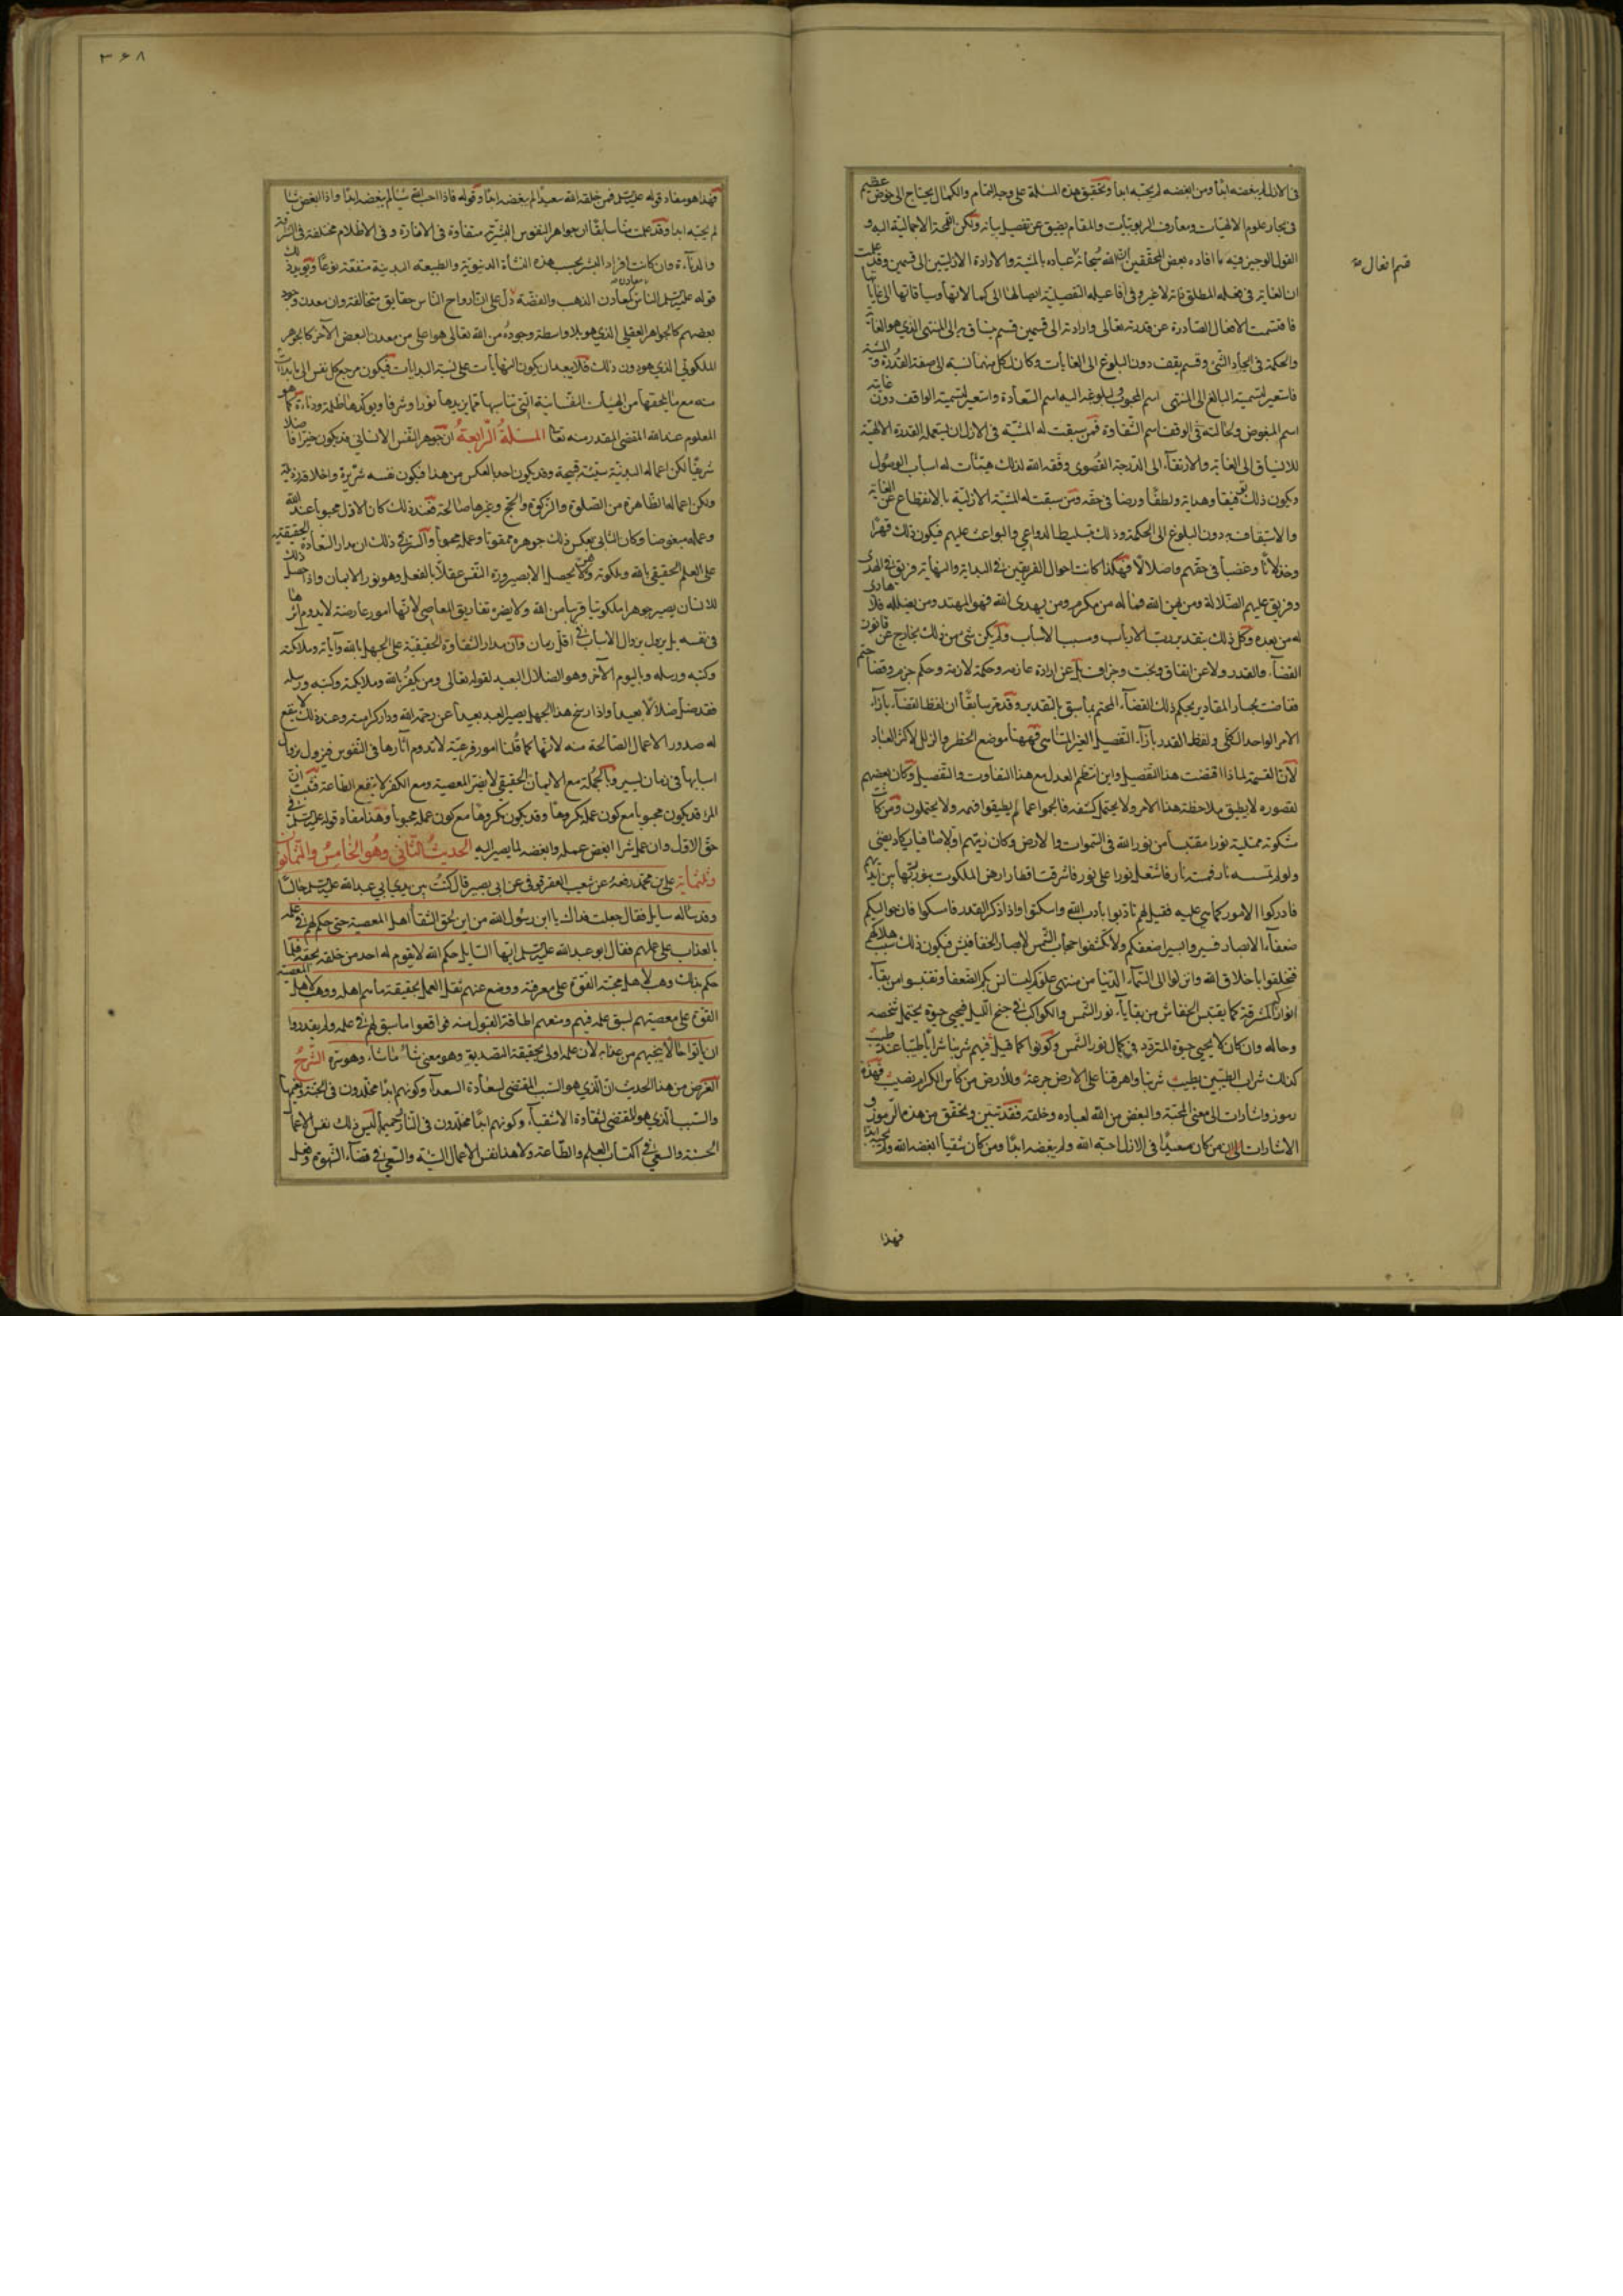 فى الازل لم يبغضه ابدا ومن ابغضه لم يحبه ابدا وتحقيق هذه المسئلة على وجه التمام والكمال يحتاج الى خوض عظيم
فى بحار علوم الالهيات ومعارف الربوبيات والمقام يضيق عن تفصيل بيانه ولكن اللمحة الاجمالية اليه و
القول الوجيز فيه ما افاده بعض المحققين ان لله سبحانه فى عباده بالمشية والارادة الازليتين الى قسمين وقد علمت
قسم افعال
ان الغاية فى فعله المطلق ذاته لا غير وفى افاعيله التفصيلية ايصالها الى كمالاتها وسياقاتها الى غاياتها
فانقسمت الافعال الصادرة عن قدرته تعالى وارادته الى قسمين قسم ينساق به الى المنتهى الذي هو الغاية
والحكمة فى ايجاد الشئ وقسم يقف دون البلوغ الى الغايات وكان لكل منهما نسبة الى صفة القدرة والمشية
فاستعير لتسمية البالغ الى المنتهى اسم المحبوب ولبلوغه اليه اسم السعادة واستعير لتسمية الواقف دون غايته
اسم المبغوض ولحالته فى الوقف اسم الشقاوة فمن سبقت له المشية فى الازل ان يستعمله القدرة الالهية
للانسياق الى الغاية والارتقاء الى الدرجة القصوى وفقه الله لذلك هيئات له اسباب الوصول
ويكون ذلك توفيقا وهداية ولطفا ورضا فى حقه ومن سبقت له المشية الازلية بالانقطاع عن الغاية
والاستيقاف به دون البلوغ الى الحكمة وذلك بتسليط الدواعي والبواعث عليهم فيكون ذلك قهرا
وخذلانا وغضبا فى حقهم واضلالا فهكذا كانت احوال الفريقين فى البداية والنهاية فريق فى الهدى
وفريق عليهم الضلالة ومن يهن الله فما له من مكرم ومن يهدى الله فهو المهتد ومن يضلله فلا هادى
له من بعده وكل ذلك بتقدير رب الارباب ومسبب الاسباب ولم يكن شئ من ذلك بخارج عن قانون
القضاء والقدر ولا عن اتفاق وبخت وجزاف بل عن ارادة عازمه وحكمة لازمة وحكم جزم وقضاء حتم
ففاضت بحار المقادير بحكم ذلك القضاء المحتم بما سبق بالتقدير وقد مر سابقا ان لفظ القضاء بازاء
الامر الواحد الكلى ولفظ القدر بازاء التفصيل الغير المتناهى فههنا موضع الخطر والزلل لاكثر العباد
لان القسمة لماذا اقتضت هذا التفصيل واين انتظم العدل مع هذا التفاوت والتفصيل وكان بعضهم
لقصوره لا يطيق ملاحظة هذا الامر ولا يحتمل كشفه فالجموا عما لم يطيقوا فهمه ولا يحتملون ومن كانت
مشكوته ممتلية نورا مقتبسا من نور الله فى السموات والارض وكان زيتهم اولا صافيا يكاد يضئ
ولو لم تمسسه نار فمسته نار فاشتعل نورا على نور فاشرقت اقطار ارض الملكوت بنور ربها بين ايديهم
فادركوا الامور كما هى عليه فقيل لهم تادبوا باداب الله واسكتوا واذا ذكر القدر فامسكوا فان حواليكم
ضعفاء الابصار فسيروا بسير اضعفكم ولا تكشفوا حجاب الشمس لابصار الخفافيش فيكون ذلك سبب هلاكهم
فتخلقوا باخلاق الله وانزلوا الى السماء الدنيا من منتهى علوكم ليستانس بكم الضعفا ونقتبسوا من بقاء
انواركم المشرقة كما يقتبس الخفاش من بقايا نور الشمس والكواكب فى جنح الليل فيحيى حيوة يحتمل شخصه
وحاله وان كان لا يحيى حيوة المتردد فى كمال نور الشمس وكونوا كما قيل فيهم شربنا شرابا طيبا عند طيب
كذلك شراب الطيبين يطيب شربنا واهرقنا على الارض جرعة وللارض من كاس الكرام نصيب فهذه
رموز واشارات الى معنى المحبة والبغض من الله لعباده وخلقه فقد تبين وتحقق من هذه الرموز و
الاشارات الى ان من كان سعيدا فى الازل احبه الله ولم يبغضه ابدا ومن كان شقيا ابغضه الله ولم يحبه ابدا
فهذا
٣٦٨
فهذا هو مفاد قوله عليه السلم فمن خلقه الله سعيدا لم يبغضه ابدا وقوله فاذا احب الله شيئا لم يبغضه ابدا واذا ابغض شيئا
لم يحبه ابدا وقد علمت منا سابقا ان جواهر النفوس البشرية متفاوتة فى الانارة وفى الاظلام مختلفة فى الشرافة
والدناءة وان كانت افراد البشر بحسب هذه النشاة الدنيوية والطبيعه البدنية متفقة نوعا ويؤيد ذلك
قوله عليه السلم الناس معادن كمعادن الذهب والفضة دل على ان ارواح الناس حقايق متخالفة وان معدن وجود
بعضهم كالجواهر العقلى الذي هو بلا واسطة وجوده من الله تعالى هو اعلى من معدن البعض الآخر كالجوهر
الملكوتى الذي هو دون ذلك فلا يبعد ان يكون النهايات على نسبة البدايات فيكون مرجع كل نفس الى ما بدات
منه مع ما يلحقها من الهيئات النفسانية التي تناسبها مما يزيدها نورا وشرفا ويؤكدها ظلمة ودناءة كما هو
المعلوم عند الله المقضى المقدر منه تعا المسئلة الرابعة ان جوهر النفس الانسانى قد يكون خيرا فاضلا
شريفا لكن اعماله البدنية سيئة قبيحة وقد يكون احد بالعكس من هذا فيكون نفسه شريرة واخلاقه رذيلة
ولكن اعماله الظاهرة من الصلوة والزكوة والحج وغيرها صالحة فعند ذلك كان الاول محبوبا عند الله
وعمله مبغوضا وكان الثانى بعكس ذلك جوهره ممقوتا وعمله محبوبا والسر فى ذلك ان مدار السعادة الحقيقية
على العلم الحقيقى بالله وملكوته ولا يحصل الا بصيرورة النفس عقلا بالفعل وهو نور الايمان واذا حصل ذلك
للانسان يصير جوهرا ملكوتيا قريبا من الله ولا يضره تفاريق المعاصى لانها امور عارضة لا يدوم اثرها
فى نفسه بل يزول بزوال الاسباب فى اقل زمان وان مدار الشقاوة الحقيقية على الجهل بالله وآياته وملائكته
وكتبه ورسله وباليوم الآخر وهو الضلال البعيد لقوله تعالى ومن يكفر بالله وملائكته وكتبه ورسله
فقد ضل ضلالا بعيدا واذا رسخ هذا الجهل يصير العبد بعيدا عن رحمة الله ودار كرامته وعند ذلك لا ينفع
له صدور الاعمال الصالحة منه لانها كما قلنا امور فرعية لا تدوم آثارها فى النفوس فيزول بزوال
اسبابها فى زمان يسير وبالجملة مع الايمان الحقيقى لا يضر المعصية ومع الكفر لا ينفع الطاعة فثبت ان
المرء قد يكون محبوبا مع كون عمله مكروها وقد يكون مكروها مع كون عمله محبوبا وهذا مفاد قوله عليه السلم فى
حق الاول وان عمل شرا ابغض عمله وابغضه لما يصير اليه الحديث الثانى وهو الخامس والثمانون
وثلثمائة على بن محمد رفعه عن شعيب العقرقوفى عن ابى بصير قال كنت بين يدي ابى عبد الله عليه السلم جالسا
وقد سأله سايل فقال جعلت فداك يا ابن رسول الله من اين لحق الشقا اهل المعصية حتى حكم لهم فى علمه
بالعذاب على عملهم فقال ابو عبد الله عليه السلم ايها السايل حكم الله لا يقوم له احد من خلقه بحقه فلما
حكم بذلك وهب لاهل محبته القوة على معرفته ووضع عنهم ثقل العمل بحقيقة ما هم اهله ووهب لاهل المعصية
القوة على معصيتهم لسبق علمه فيهم ومنعهم اطاقة القبول منه فواقعوا ما سبق لهم فى علمه ولم يقدروا
ان ياتوا حالا ينجيهم من عذابه لان علمه اولى بحقيقة التصديق وهو معنى شاء ما شاء وهو سره الشرح
الغرض من هذا الحديث ان الذي هو السبب المقتضى لسعادة السعداء وكونهم ابدا مخلدون فى الجنة ونعيمها
والسبب الذي هو المقتضى لشقاوة الاشقياء وكونهم ابدا مخلدون فى النار وحميمها ليس ذلك نفس الاعمال
الحسنة والسعى فى اكتساب العلم والطاعة ولا هذا نفس الاعمال السيئة والسعى فى قضاء الشهوة وفعل